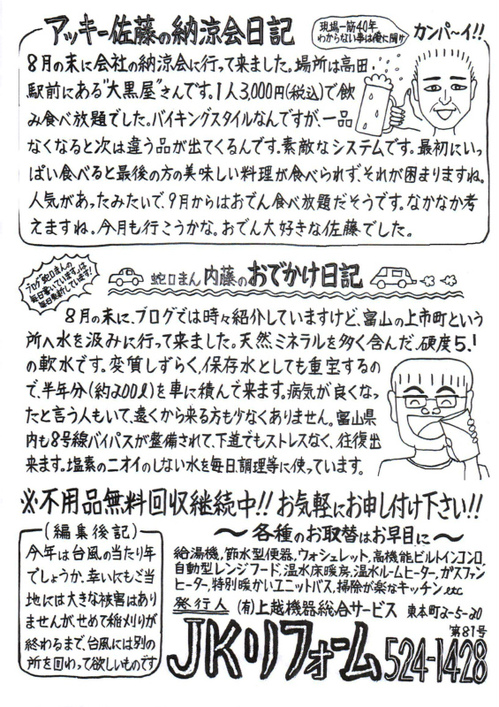 アッキー佐藤の納涼会日記
現場一筋40年
わからない事は俺に聞け
カンパ～イ!!
8月の末に会社の納涼会に行って来ました。場所は高田
駅前にある"大黒屋"さんです。1人3,000円(税込)で飲
み食べ放題でした。バイキングスタイルなんですが、一品
なくなると次は違う品が出てくるんです。素敵なシステムです。最初にいっ
ぱい食べると最後の方の美味しい料理が食べられず、それが困りますね。
人気があったみたいで、9月からはおでん食べ放題だそうです。なかなか考
えますね。今月も行こうかな。おでん大好きな佐藤でした。
ブログ蛇口まんの
毎日書いています。は
毎日更新しています!
蛇口まん内藤のおでかけ日記
8月の末に、ブログでは時々紹介していますけど、富山の上市町という
所へ水を汲みに行って来ました。天然ミネラルを多く含んだ、硬度5.1
の軟水です。変質しずらく、保存水としても重宝するの
で、半年分(約200ℓ)を車に積んで来ます。病気が良くなっ
たと言う人もいて、遠くから来る方も少なくありません。富山県
内も8号線バイパスが整備されて、下道でもストレスなく、往復出
来ます。塩素のニオイのしない水を毎日、調理等に使っています。
※不用品無料回収継続中!!お気軽にお申し付け下さい!!
(編集後記)
今年は台風の当たり年
でしょうか。幸いにもご当
地には大きな被害はあり
ませんが、せめて稲刈りが
終わるまで、台風には別の
所を回わって欲しいものです
～各種のお取替はお早目に～
給湯機、節水型便器、ウォシュレット、高機能ビルトインコンロ、
自動型レンジフード、温水床暖房、温水ルームヒーター、ガスファン
ヒーター、特別暖かいユニットバス、掃除が楽なキッチン、etc
発行人 (有)上越機器総合サービス 東本町2-5-20
第81号
JKリフォーム 524-1428